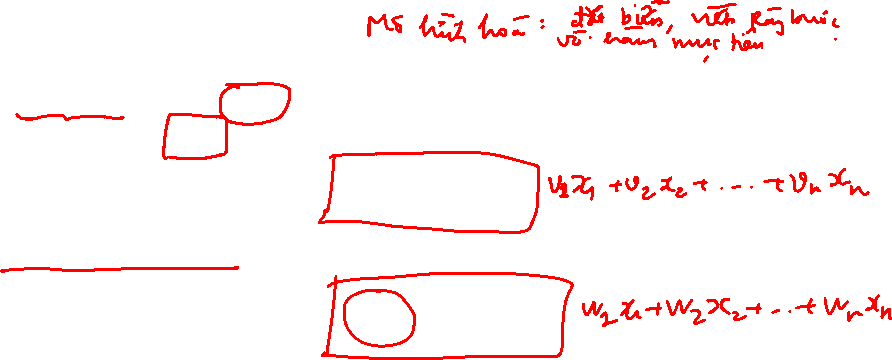 Mô hình hoá: đặt biến, viết ràng buộc
và hàm mục tiêu
v₁x₁ + v₂x₂ + .... + vₙxₙ
w₁x₁ + w₂x₂ + ... + wₙxₙ